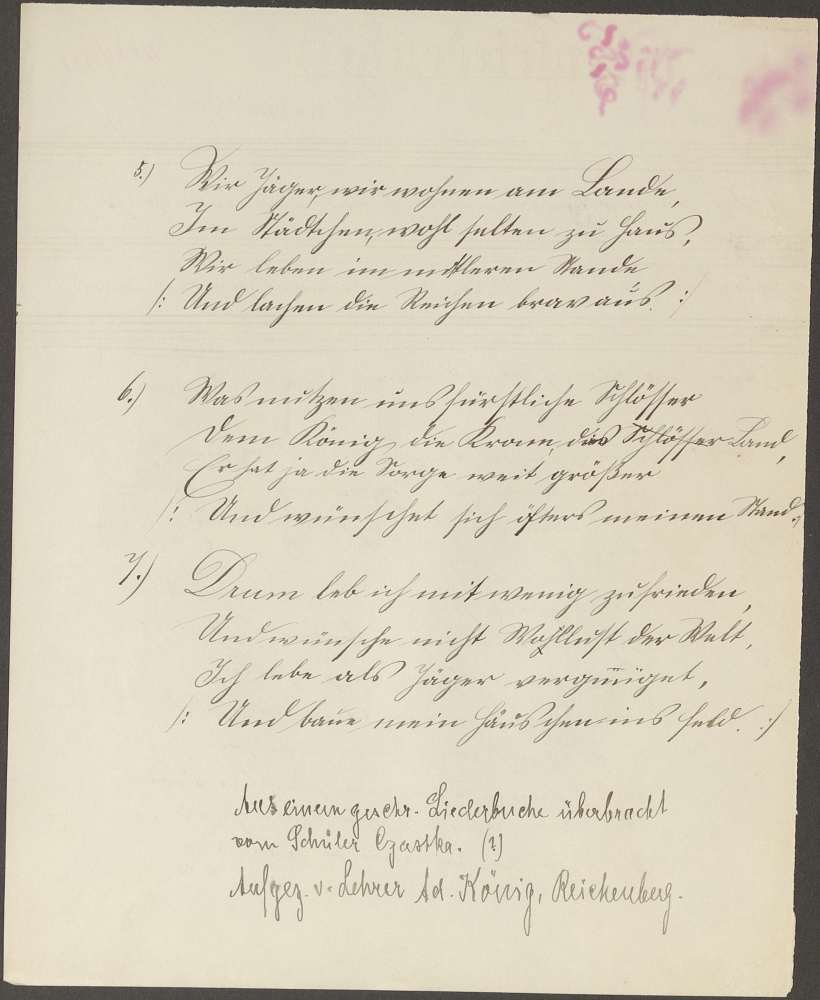 5.) Wir Jäger, wir wohnen am Lande,
Im Städtchen, wohl selten zu Haus,
Wir leben im mittleren Stande
/: Und lachen die Reichen brav aus. :/
6.) Was nutzen uns fürstliche Schlösser
Dem König, die Krone, das Schlösser Land,
Er hat ja die Sorge weit größer
/: Und wünschet sich öfters meinen Stand.
7.) Drum leb ich mit wenig zufrieden,
Und wünsche nicht Wohllust der Welt,
Ich lebe als Jäger vergnüget,
/: Und baue mein Häuschen ins Feld. :/
Aus einem geschr. Liederbuche überbracht
vom Schüler Czastka. (?)
Aufgez. v. Lehrer Ad. König, Reichenberg.